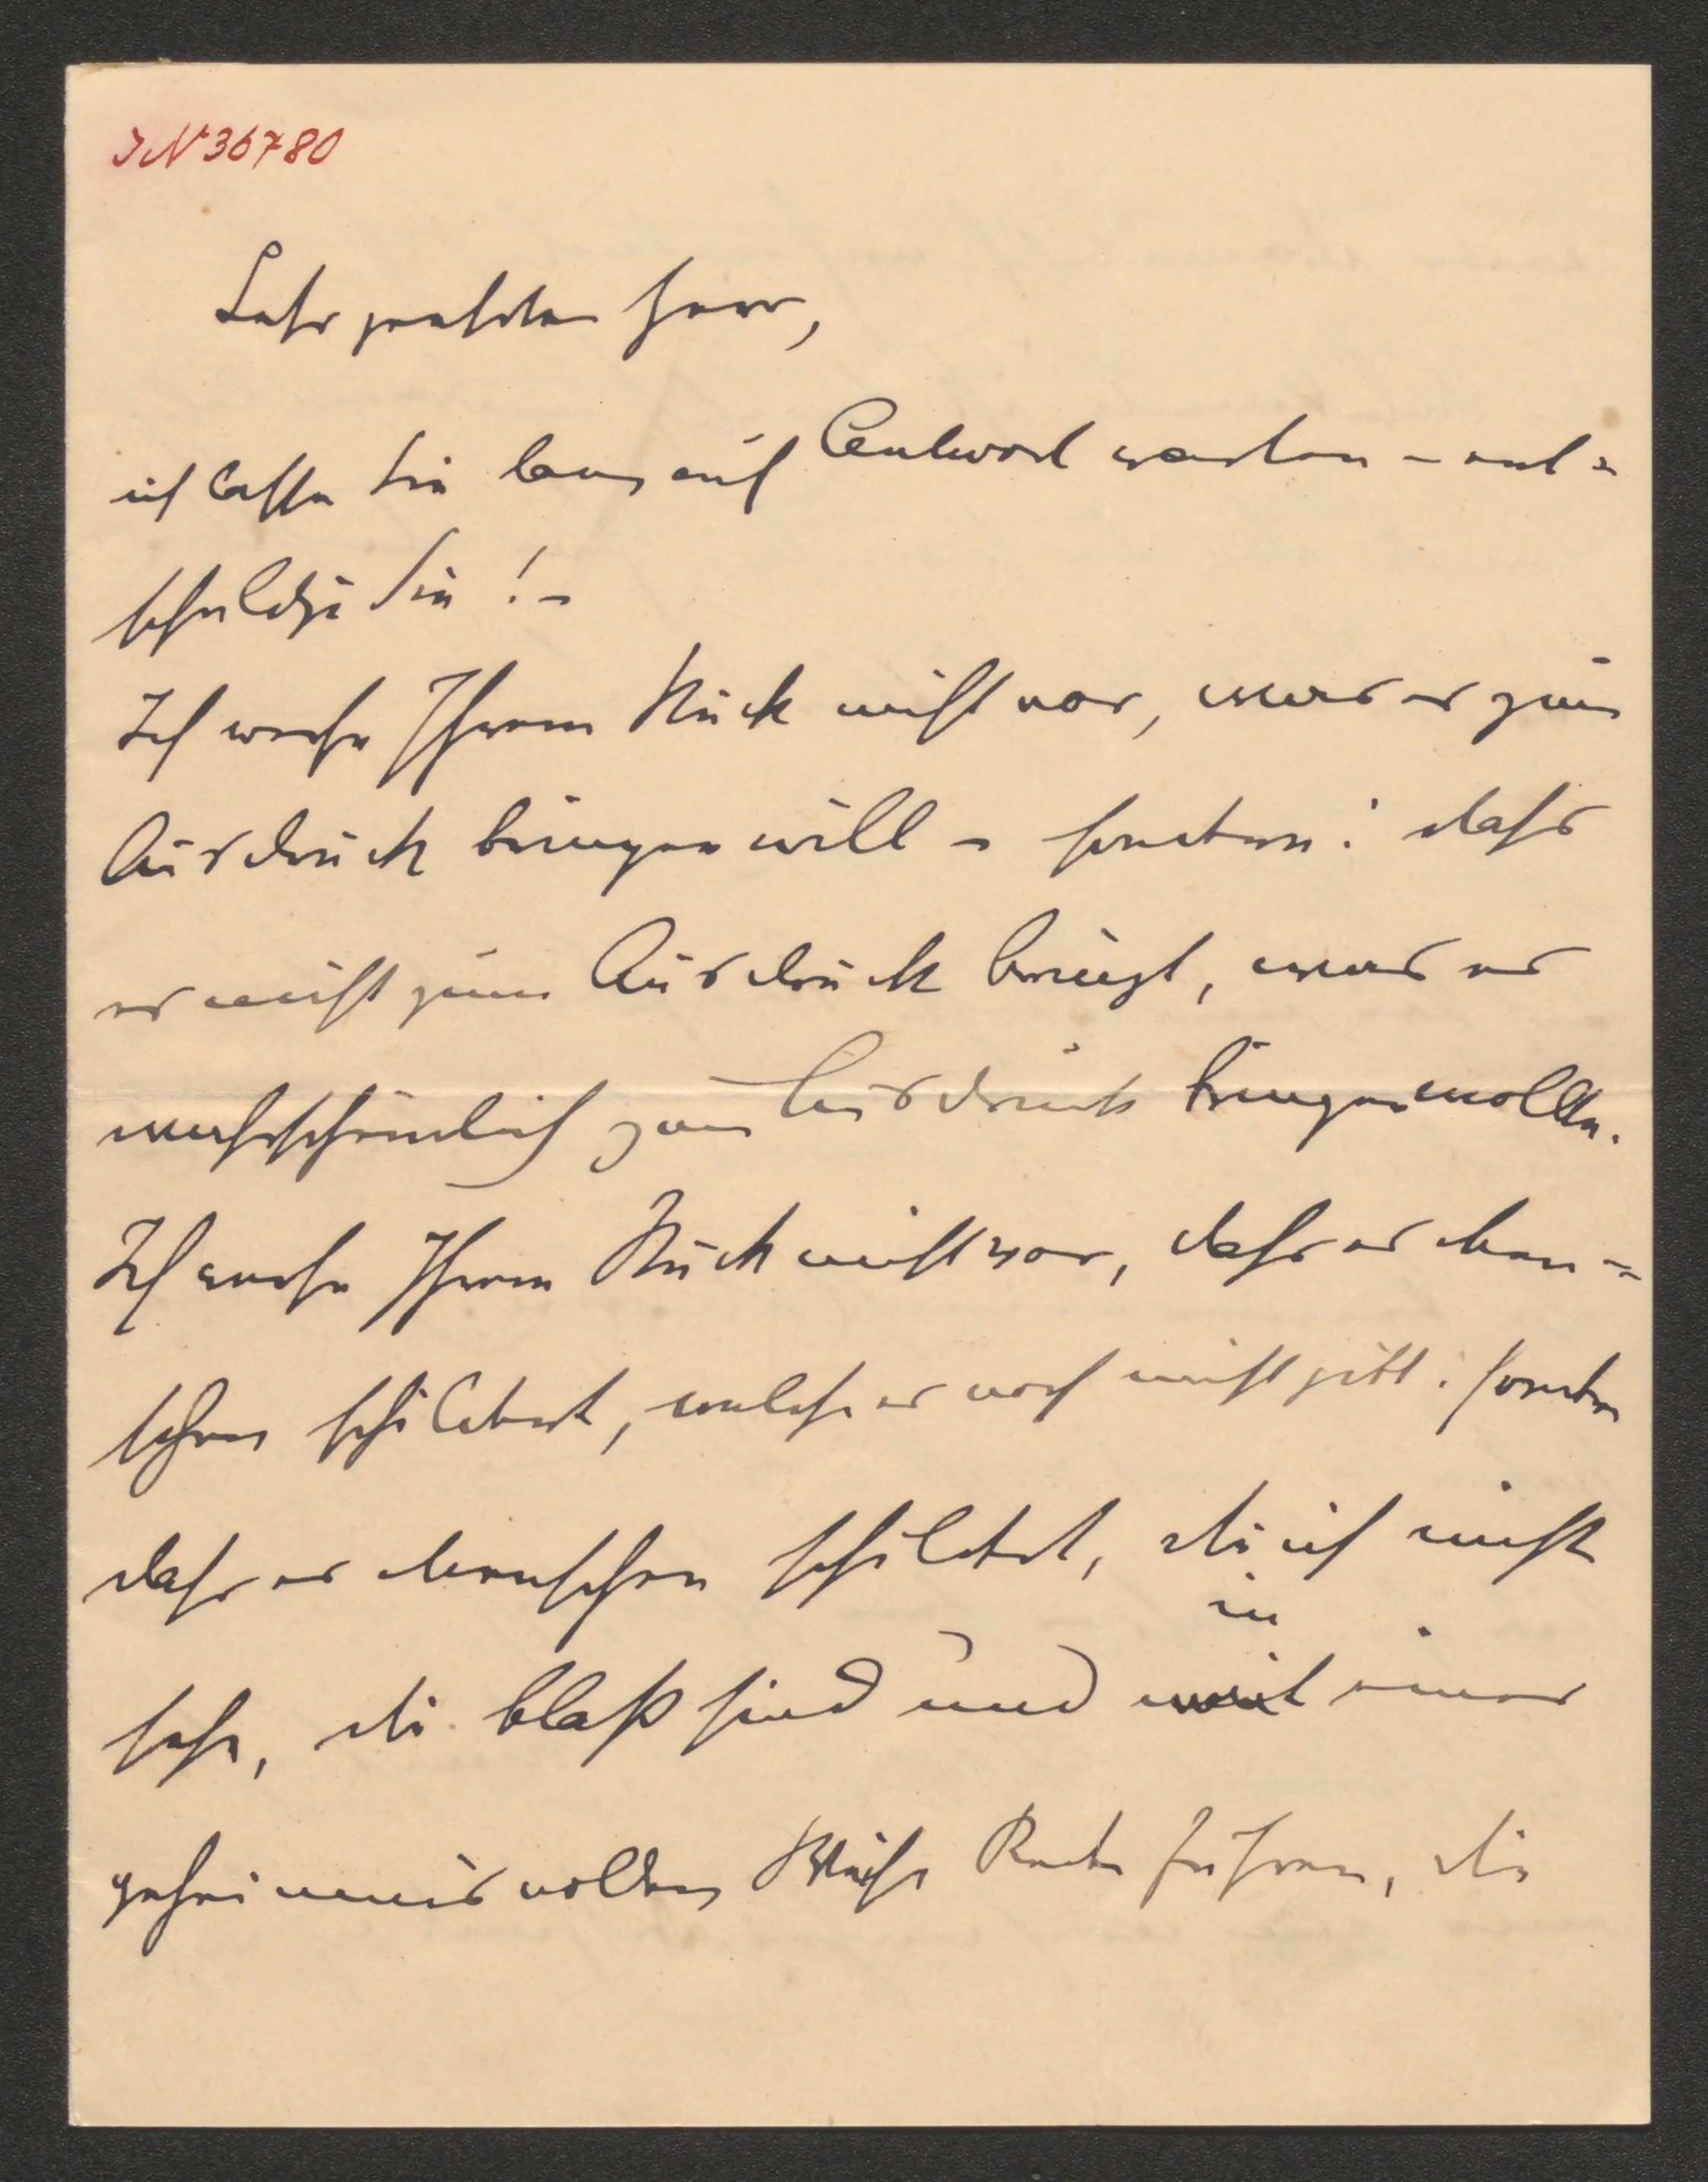 IN 36780
Sehr geehrter Herr,
ich lasse Sie lang auf Antwort warten – ent-
schuldigen Sie! –
Ich werfe Ihrem Stück nicht vor, was es zum
Ausdruck bringen will – sondern: dass
es nicht zum Ausdruck bringt, was es
wahrscheinlich zum Ausdruck bringen wollte.
Ich werfe Ihrem Stück nicht vor, dass es Men-
schen schildert, welche es noch nicht gibt: sondern
dass es Menschen schildert, die ich nicht
sehe, die blaß sind und in einer
geheimnisvollen Weise Rede führen, die